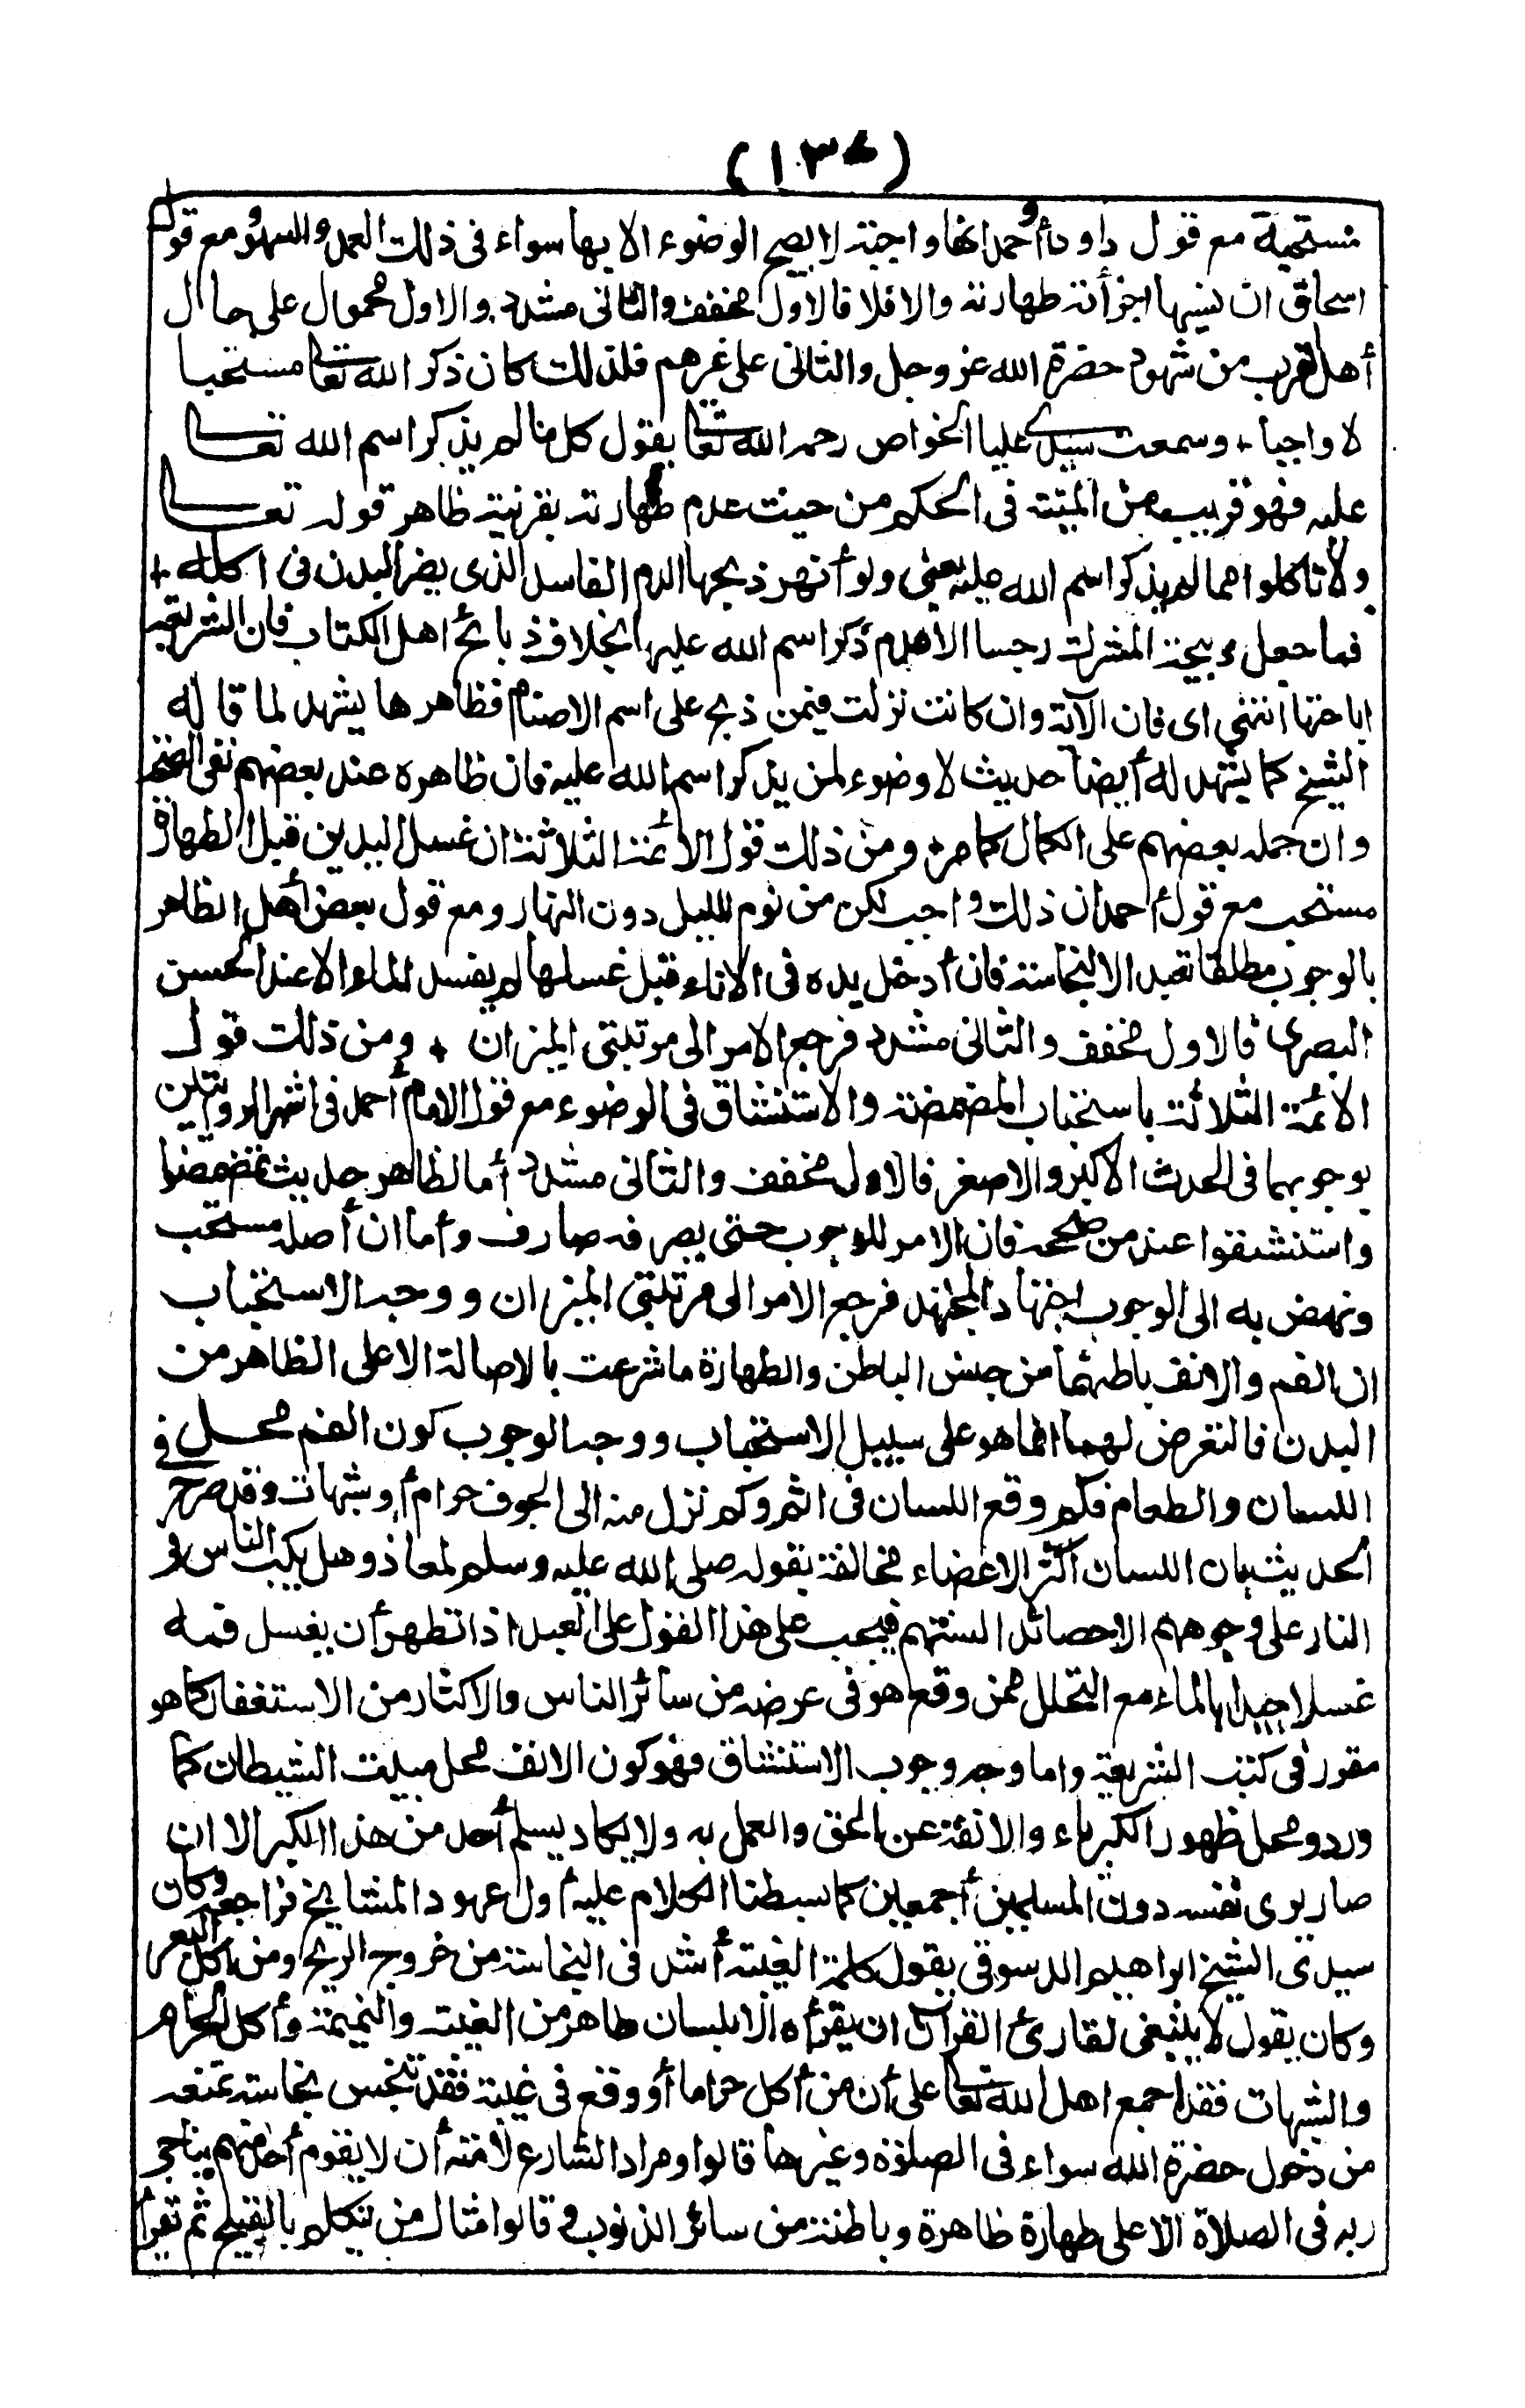 مستحبة مع قول داود وأحمد انها واجبة لا يصح الوضوء الا بها سواء فى ذلك العمد والسهو ومع قول
اسحاق ان نسيها اجزأته طهارته والا فلا فالأول مخفف والثانى مشدد والاول محمول على حال
أهل القرب من شهود حضرة الله عز وجل والثانى على غيرهم فلذلك كان ذكر الله تعالى مستحبا
لا واجبا + وسمعت سيدى عليا الخواص رحمه الله تعالى يقول كل ما لم يذكر اسم الله تعالى
عليه فهو قريب من الميتة فى الحكم من حيث عدم طهارته بقرينة ظاهر قوله تعالى
ولا تاكلوا مما لم يذكر اسم الله عليه يعنى ولو أنهر ذبحها الدم الفاسد الذى يضر البدن فى اكله +
فما جعل ذبيحة المشرك رجسا الا عدم ذكر اسم الله عليها بخلاف ذبائح اهل الكتاب فان الشريعة
اباحتها انتهى اى فان الآية وان كانت نزلت فيمن ذبح على اسم الاصنام فظاهرها يشهد لما قاله
الشيخ كما يشهد له أيضا حديث لا وضوء لمن يذكر اسم الله عليه فان ظاهره عند بعضهم نفى الصحة
وان حمله بعضهم على الكمال كما مر + ومن ذلك قول الأئمة الثلاثة ان غسل اليدين قبل الطهارة
مستحب مع قول أحمد ان ذلك واجب لكن من نوم الليل دون النهار ومع قول بعض أهل الظاهر
بالوجوب مطلقا تعبد الا لنجاسة فان أدخل يده فى الاناء قبل غسلها لم يفسد الماء الا عند الحسن
البصرى فالاول مخفف والثانى مشدد فرجع الامر الى مرتبتى الميزان + ومن ذلك قول
الائمة الثلاثة باستحباب المضمضة والاستنشاق فى الوضوء مع قول الامام أحمد فى اشهر الروايتين
بوجوبهما فى الحدث الاكبر والاصغر فالاول مخفف والثانى مشدد أما لظاهر حديث تمضمضوا
واستنشقوا عند من صححه فان الامر للوجوب حتى يصرفه صارف وأما ان أصله مستحب
ونهض به الى الوجوب اجتهاد المجتهد فرجع الامر الى مرتبتى الميزان ووجه الاستحباب
ان الفم والانف باطنهما من جنس الباطن والطهارة ما شرعت بالاصالة الا على الظاهر من
البدن فالتعرض لهما انما هو على سبيل الاستحباب ووجه الوجوب كون الفم محل فى
اللسان والطعام فكم وقع اللسان فى اثم وكم نزل منه الى الجوف حرام أو شبهات وقد صرح
الحديث بان اللسان أكثر الاعضاء مخالفة بقوله صلى الله عليه وسلم لمعاذ وهل يكب الناس فى
النار على وجوههم الا حصائد السنتهم فيجب على هذا القول على العبد اذا تطهر أن يغسل فمه
غسلا جيدا بالماء مع التحلل ممن وقع هو فى عرضه من سائر الناس والاكثار من الاستغفار كما هو
مقرر فى كتب الشريعة واما وجه وجوب الاستنشاق فهو كون الانف محل مبيت الشيطان كما
ورد ومحل ظهور الكبرياء والانفة عن الحق والعمل به ولا يكاد يسلم أحد من هذا الكبر الا ان
صار يرى نفسه دون المسلمين أجمعين كما بسطنا الكلام عليه أول عهود المشايخ فراجعه وكان
سيدى الشيخ ابراهيم الدسوقى يقول كلمة الغيبة أشد فى النجاسة من خروج الريح ومن اكل البعر
وكان يقول لا ينبغى لقارئ القرآن ان يقرأه الا بلسان طاهر من الغيبة والنميمة وأكل الحرام
والشبهات فقد اجمع اهل الله تعالى على أن من أكل حراما أو وقع فى غيبة فقد تنجس نجاسة تمنعه
من دخول حضرة الله سواء فى الصلوة وغيرها قالوا ومراد الشارع لأمته أن لا يقوم أحد منهم يناجى
ربه فى الصلاة الا على طهارة ظاهرة وباطنة من سائر الذنوب وقالوا مثال من يتكلم بالقبيح ثم تقرأ